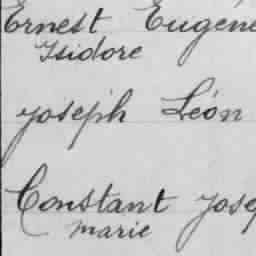 Ernest Eugène
Isidore
Joseph Léon
Constant Josep
Marie